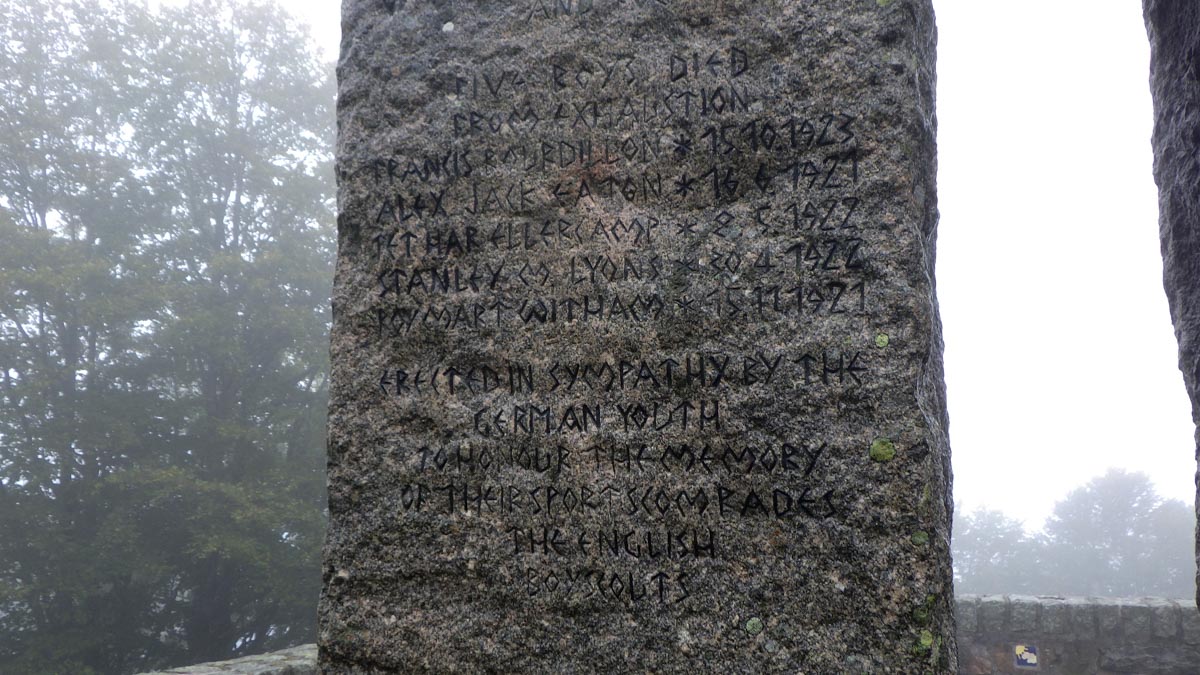 AND
FIVE BOYS DIED
FROM EXHAUSTION
FRANCIS BOURDILLON * 15.10.1923
ALEX JACK EATON * 16.6.1921
ELLERCAMP * 2.5.1922
STANLEY CO. LYONS * 20.4.1922
ROYMART WITHAM * 15.11.1921
ERECTED IN SYMPATHY BY THE
GERMAN YOUTH
TO HONOUR THE MEMORY
OF THEIR SPORTSCOMRADES
THE ENGLISH
BOYSCOUTS